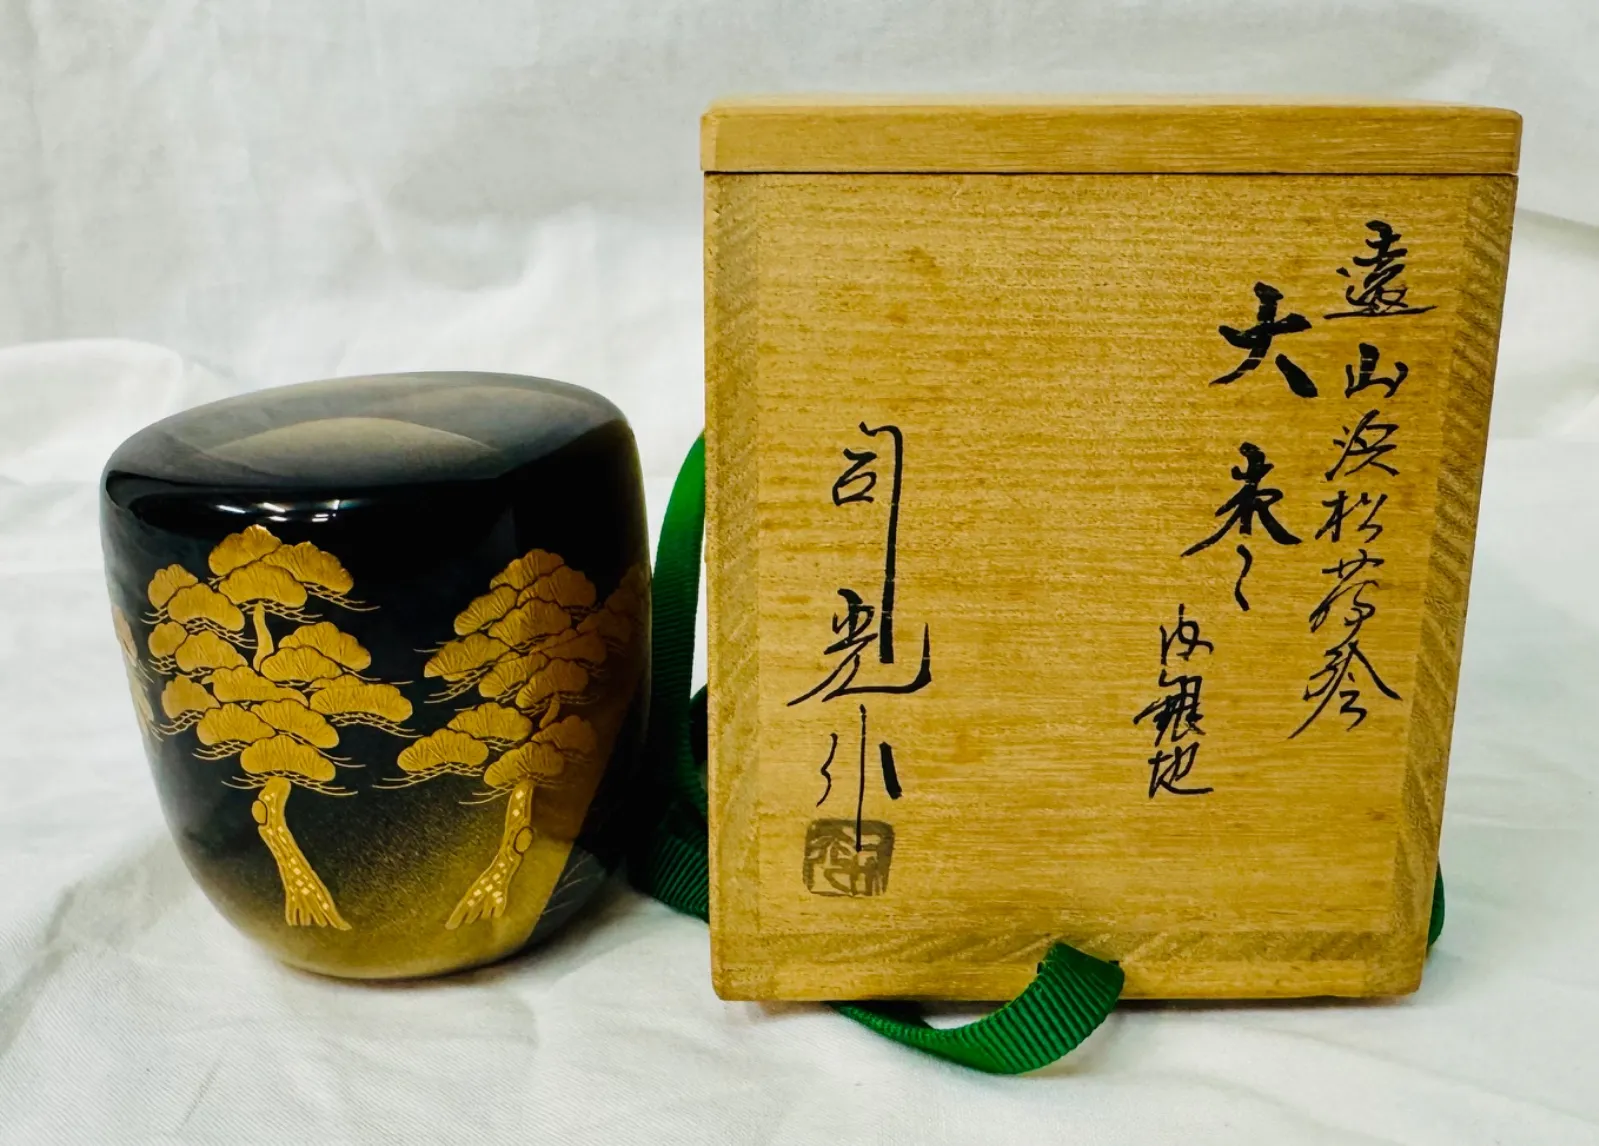 遠山浜松蒔絵
大棗
内銀地
司光作